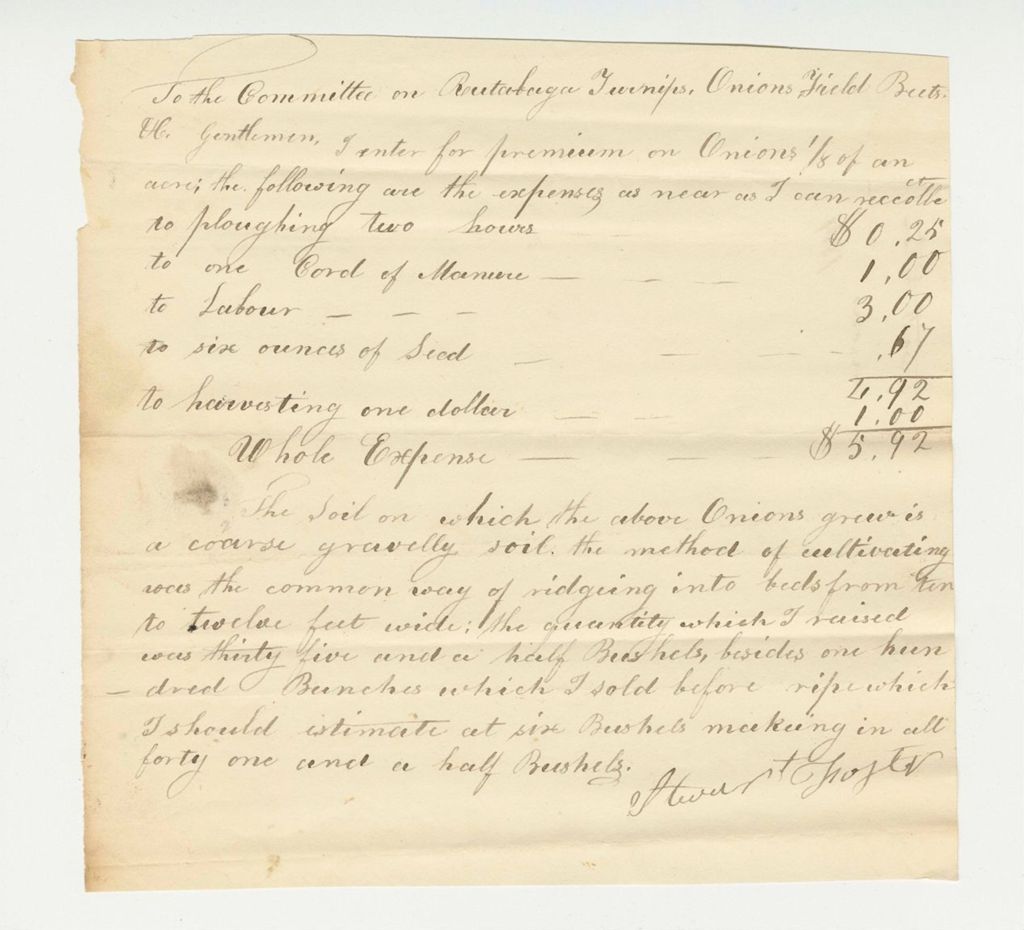 To the Committee on Rutabaga Turnips, Onions Field Beets.
&c. Gentlemen, I enter for premium on Onions 1/8 of an
acre; the following are the expenses as near as I can reccollect
to ploughing two hours $0.25
to one Cord of Manure — — — 1.00
to Labour — — — 3.00
to six ounces of Seed — — — .67
4.92
to harvesting one dollar — — 1.00
Whole Expense — — — $5.92
The Soil on which the above Onions grew is
a coarse gravelly soil. the method of cultivating
was the common way of ridgeing into beds from ten
to twelve feet wide; the quantity which I raised
was thirty five and a half Bushels, besides one hun
– dred Bunches which I sold before ripe which
I should estimate at six Bushels makeing in all
forty one and a half Bushels.
Stewart Foster